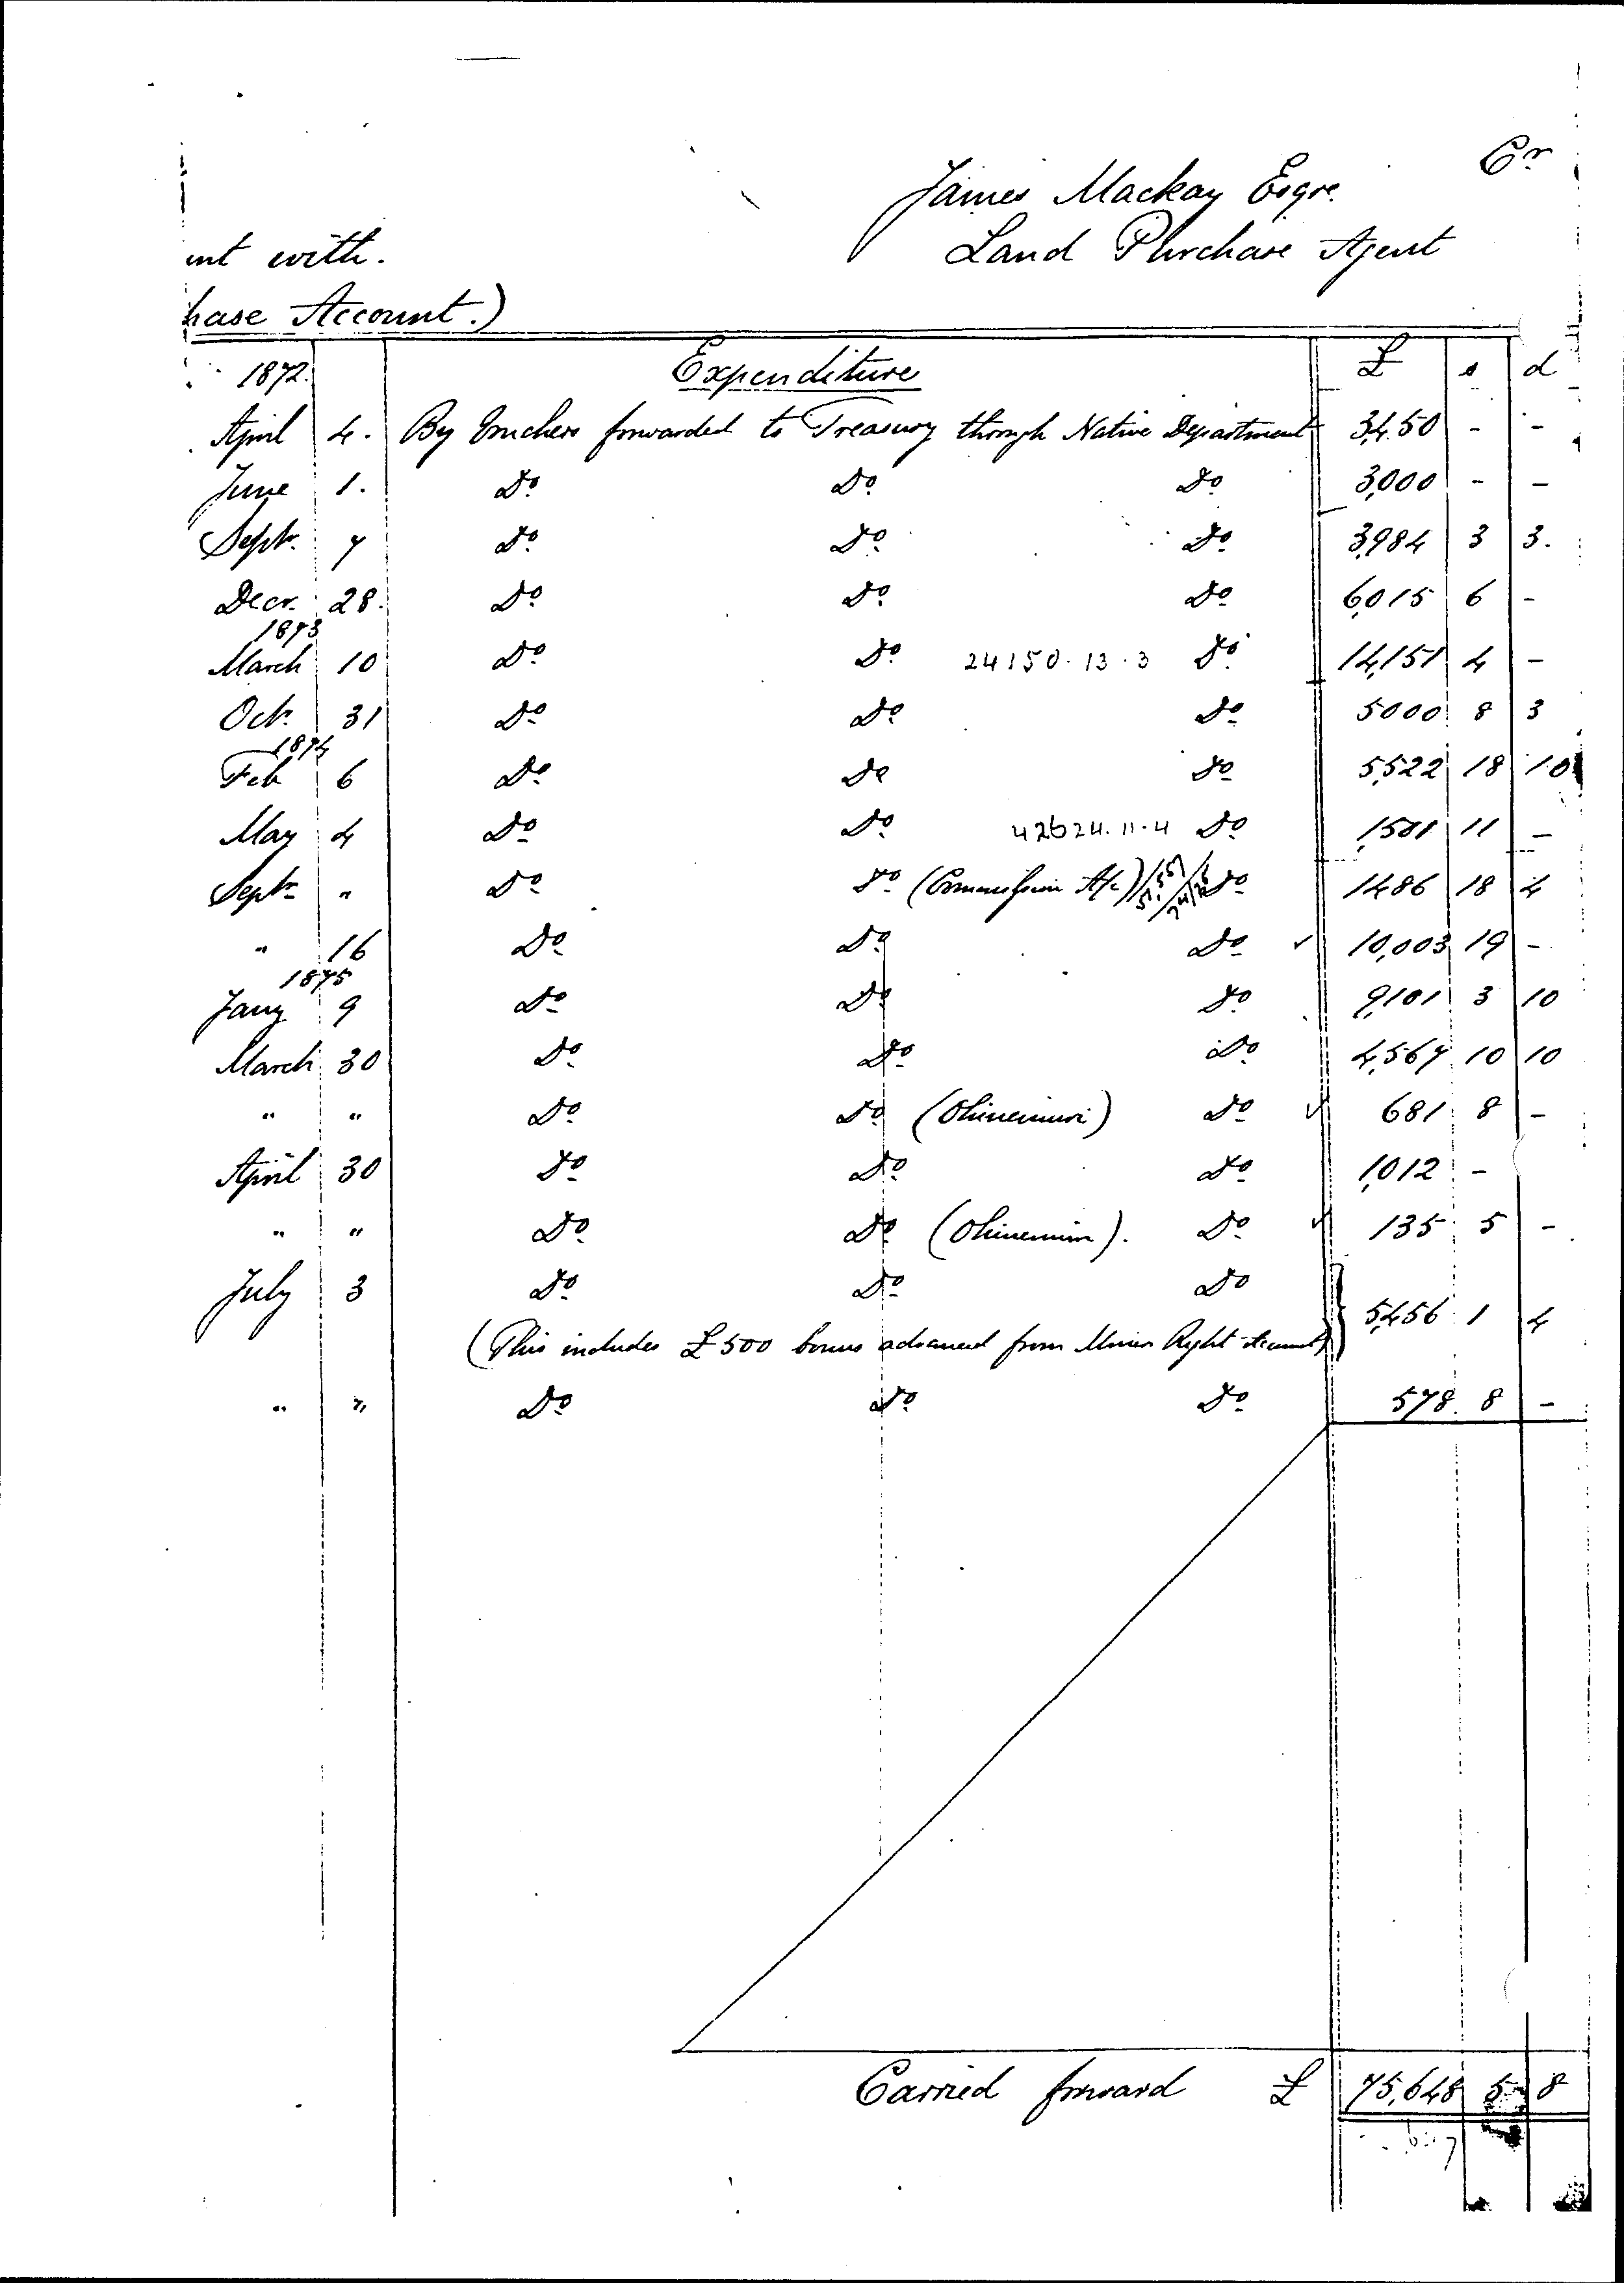 Cr
James Mackay Esqre.
Land Purchase Agent
unt with.
hase Account.)
1872. Expenditure £ s d
April 4. By Vouchers forwarded to Treasury through Native Department 3,450 - -
June 1. Do Do Do 3,000 - -
Septr. 7 Do Do Do 3,984 3 3.
Decr. 28. Do Do Do 6,015 6 -
1873
March 10 Do Do 24150.13.3 Do 14,151 4 -
Octr. 31 Do Do Do 5000 8 3
1874
Feb 6 Do Do Do 5,522 18 10
May 4 Do Do 42624.11.4 Do 1,501 11 -
Septr " Do Do (Commission A/c) Do 1,486 18 4
" 16 Do Do Do ✓ 10,003 19 -
1875
Jany 9 Do Do Do 9,101 3 10
March 30 Do Do Do 4,567 10 10
" " Do Do (Ohinemuri) Do ✓ 681 8 -
April 30 Do Do Do 1,012 -
" " Do Do (Ohinemuri). Do ✓ 135 5 -
July 3 Do Do Do
(This includes £500 bonus advanced from Miners Right Account) 5,456 1 4
" " Do Do Do 578 8 -
Carried forward £ 75,648 5 8